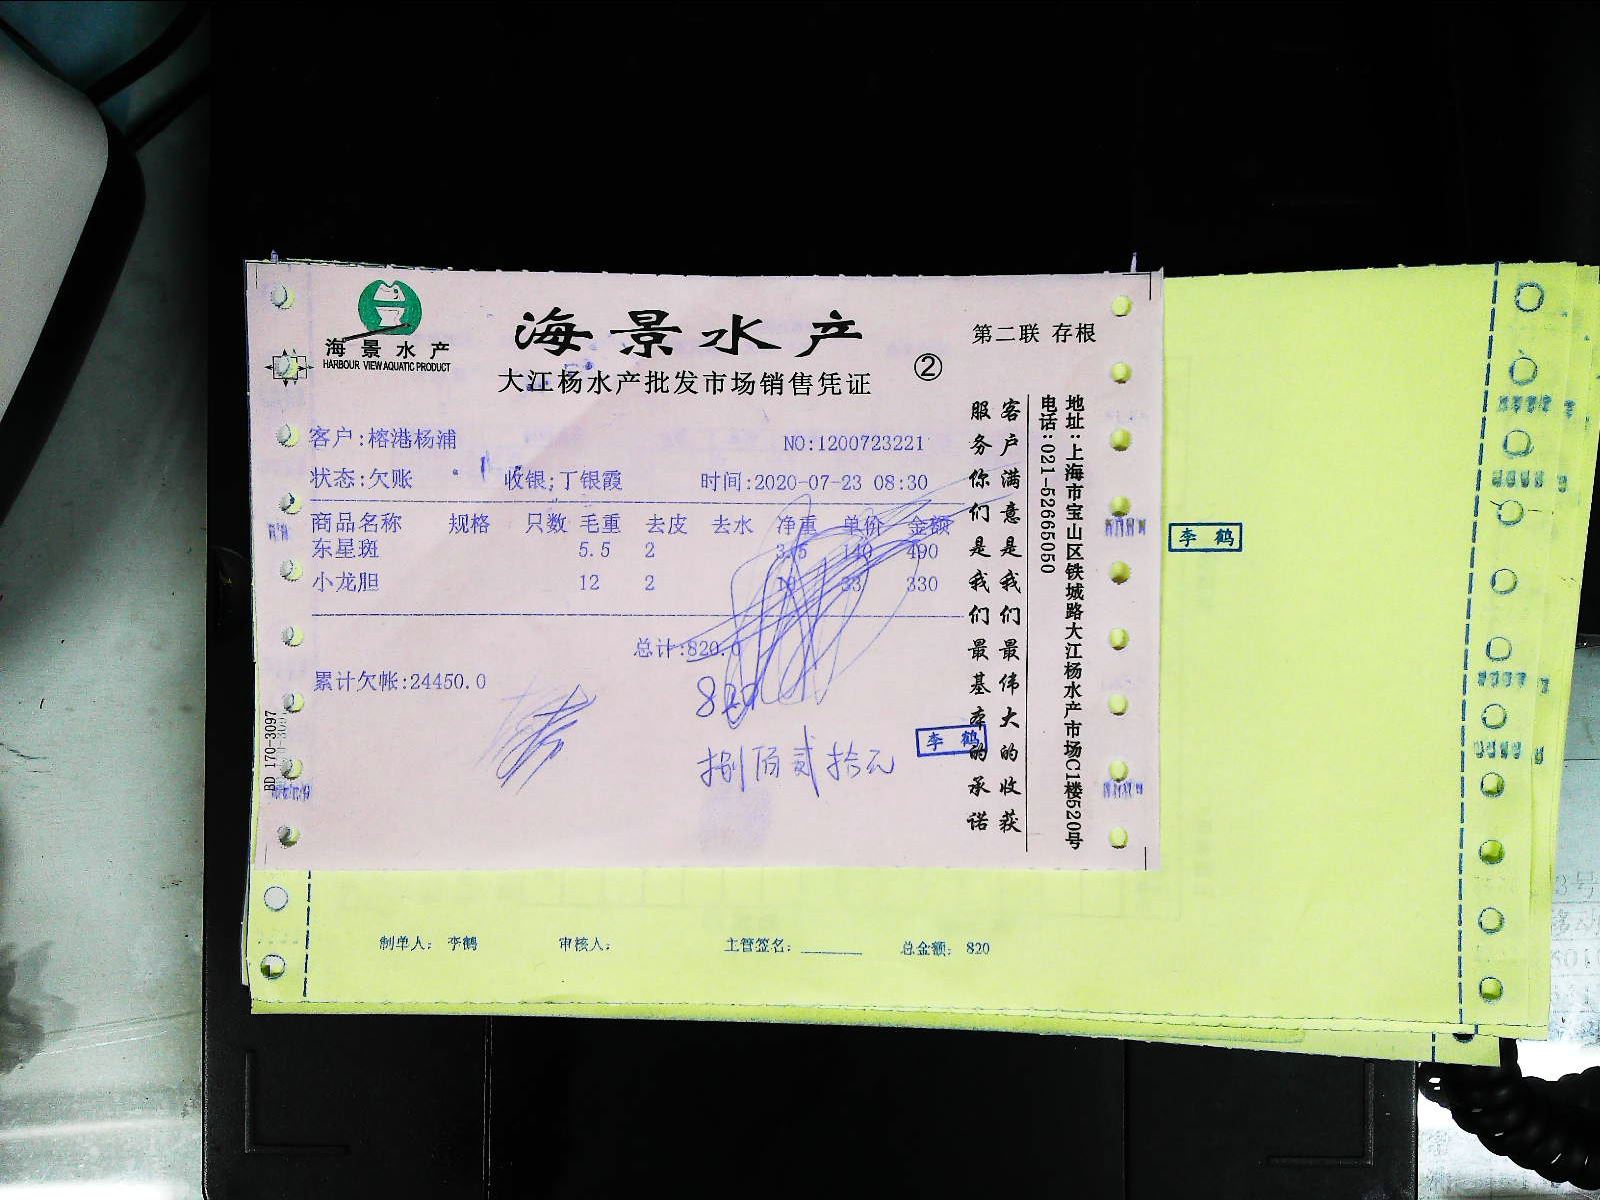 海景水产
HARBOUR VIEW AQUATIC PRODUCT
海景水产
大江杨水产批发市场销售凭证
②
第二联 存根
客户:榕港杨浦
NO:1200723221
状态:欠账 收银;丁银霞 时间:2020-07-23 08:30
商品名称 规格 只数 毛重 去皮 去水 净重 单价 金额
东星斑 5.5 2 3.5 140 490
小龙胆 12 2 10 33 330
总计:820.0
累计欠帐:24450.0
820
捌佰贰拾元
李鹤
李鹤
客户满意是我们最伟大的收获
服务你们是我们最基本的承诺
地址:上海市宝山区铁城路大江杨水产市场C1楼520号
电话:021-52665050
BD 170-3097
制单人: 李鹤 审核人: 主管签名: 总金额: 820